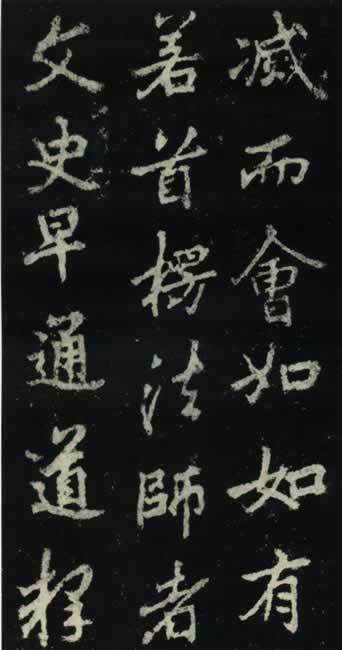 滅而會如如有
若首楞法師者
文史早通道釋